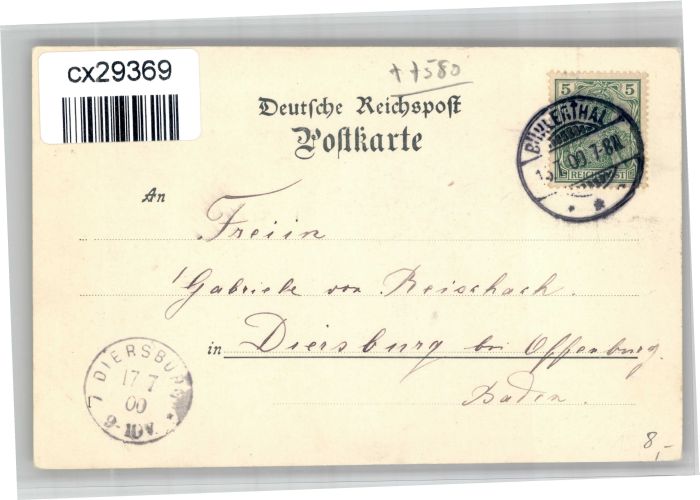 cx29369
++580
Deutsche Reichspost
Postkarte
5 5
REICHSPOST
BÜHLERTHAL
7 00 7-8N
An
Freiin
Gabriele von Reischach.
in Diersburg bei Offenburg.
Baden.
DIERSBURG
17 7
00
9-10V.
8,-